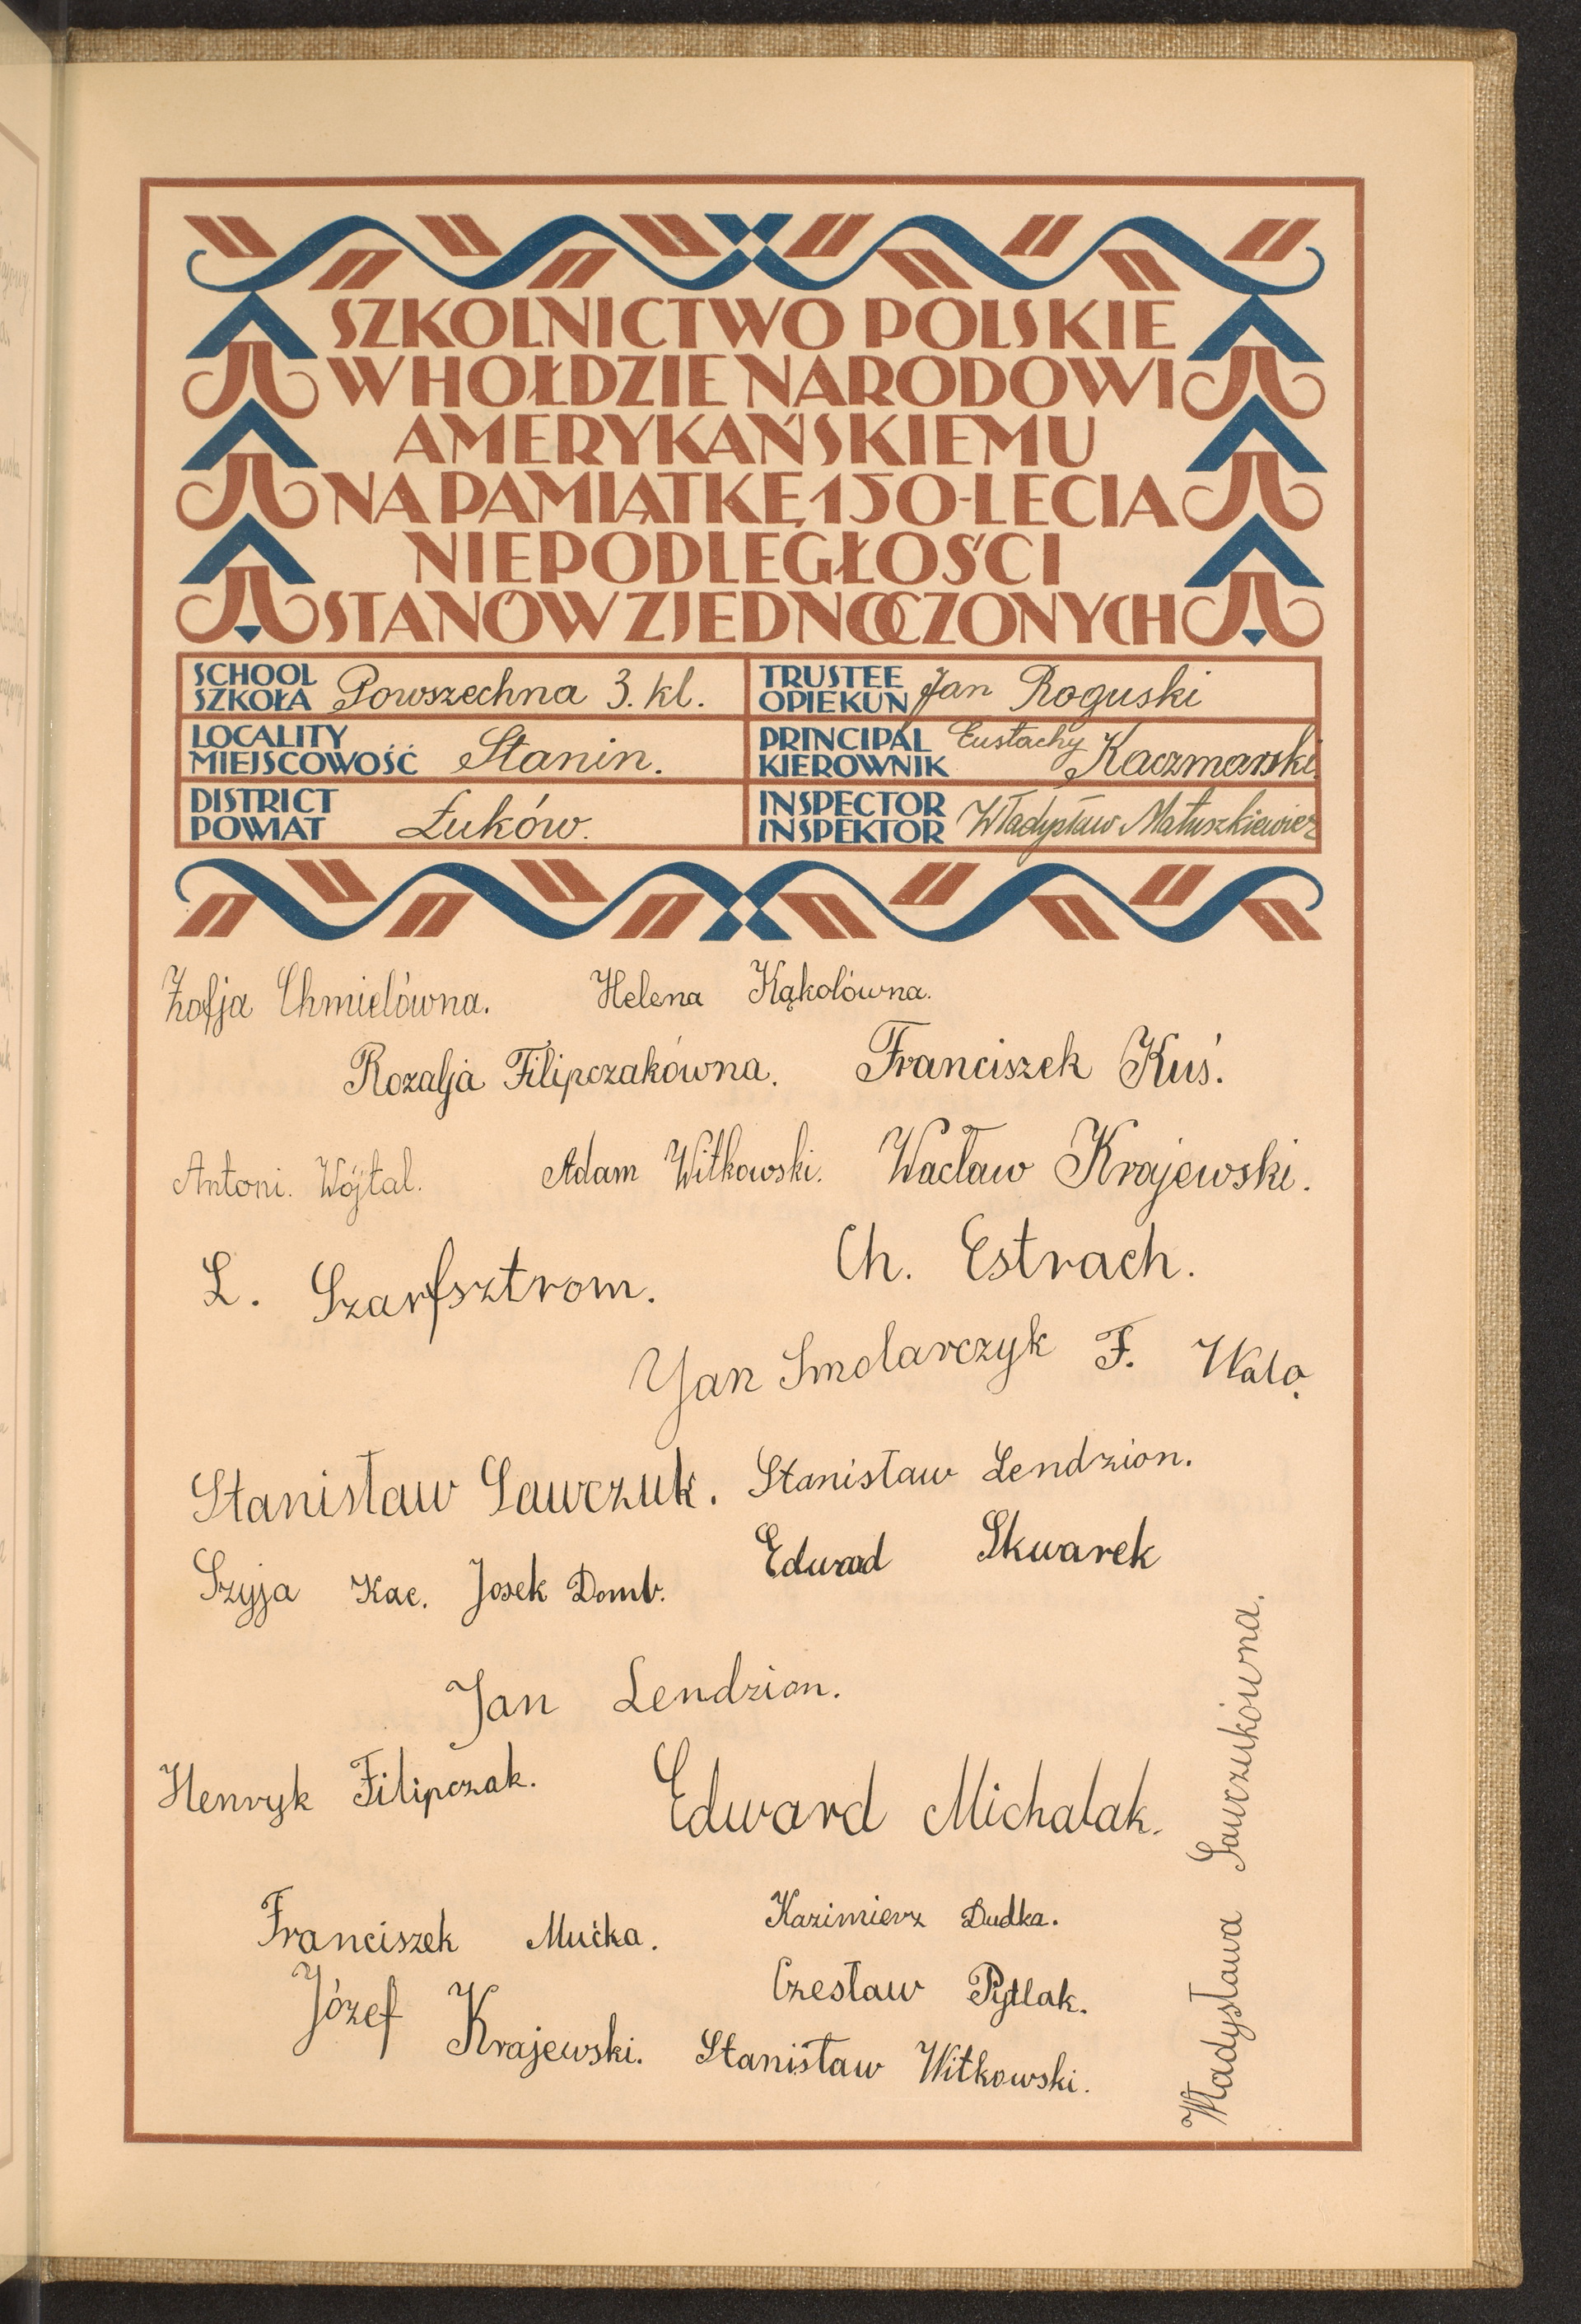 SZKOLNICTWO POLSKIE
W HOŁDZIE NARODOWI
AMERYKAŃSKIEMU
NA PAMIĄTKĘ 150-LECIA
NIEPODLEGŁOŚCI
STANÓW ZJEDNOCZONYCH
SCHOOL
SZKOŁA Powszechna 3. kl.
TRUSTEE
OPIEKUN Jan Roguski
LOCALITY
MIEJSCOWOŚĆ Stanin.
PRINCIPAL
KIEROWNIK Eustachy Kaczmarski
DISTRICT
POWIAT Łuków.
INSPECTOR
INSPEKTOR Władysław Matuszkiewicz
Zofja Chmielówna. Helena Kąkolówna.
Rozalja Filipczakówna. Franciszek Kuś.
Antoni. Wójtal. Adam Witkowski. Wacław Krajewski.
L. Szarfsztrom. Ch. Estrach.
Jan Smolarczyk F. Wala.
Stanisław Sawczuk. Stanisław Lendzion.
Szyja Kac. Josek Domb. Edward Skwarek
Jan Lendzion.
Henryk Filipczak. Edward Michalak.
Franciszek Mućka. Kazimierz Dudka.
Józef Krajewski. Czesław Pytlak.
Stanisław Witkowski.
Władysława Sawczukówna.